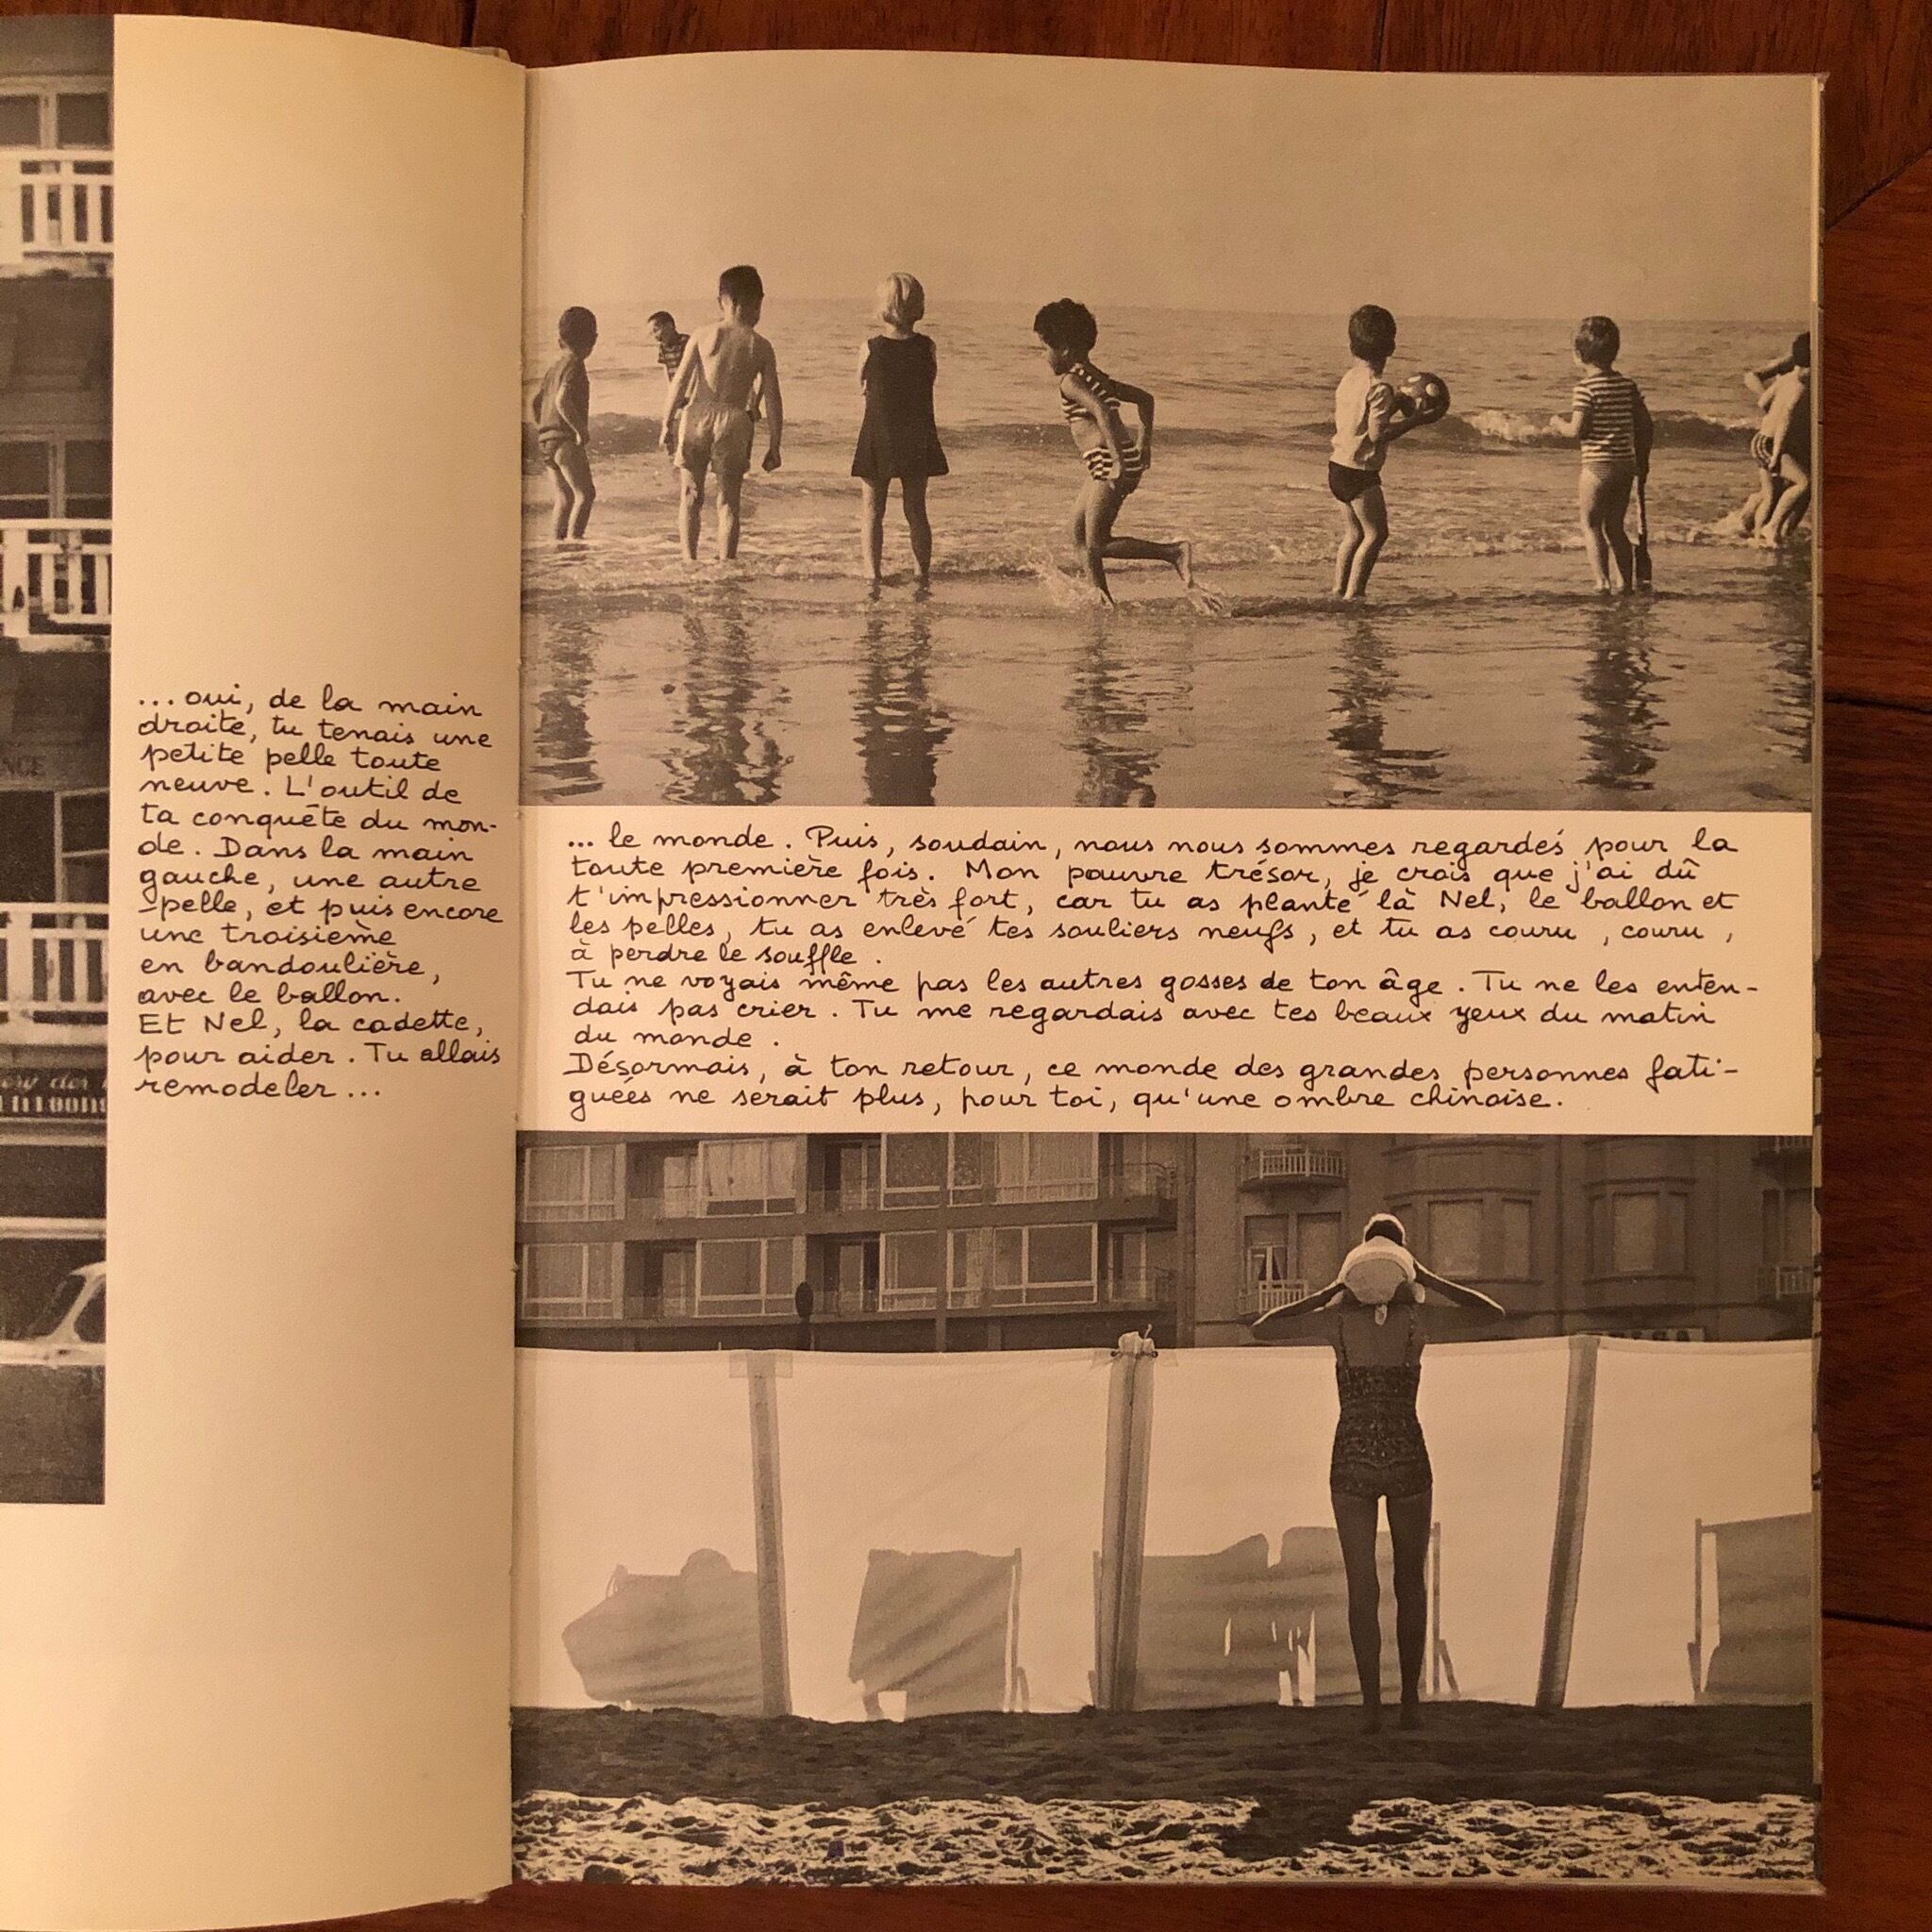 ... oui, de la main
droite, tu tenais une
petite pelle toute
neuve. L'outil de
ta conquête du mon-
de. Dans la main
gauche, une autre
pelle, et puis encore
une troisième
en bandoulière,
avec le ballon.
Et Nel, la cadette,
pour aider. Tu allais
remodeler...
... le monde. Puis, soudain, nous nous sommes regardés pour la
toute première fois. Mon pauvre trésor, je crois que j'ai dû
t'impressionner très fort, car tu as planté là Nel, le ballon et
les pelles, tu as enlevé tes souliers neufs, et tu as couru, couru,
à perdre le souffle.
Tu ne voyais même pas les autres gosses de ton âge. Tu ne les enten-
dais pas crier. Tu me regardais avec tes beaux yeux du matin
du monde.
Désormais, à ton retour, ce monde des grandes personnes fati-
guées ne serait plus, pour toi, qu'une ombre chinoise.